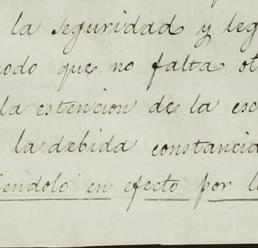 la seguridad y leg
odo que no falta ot
la estencion de la esc
la debida constancia
iendolo en efecto por l